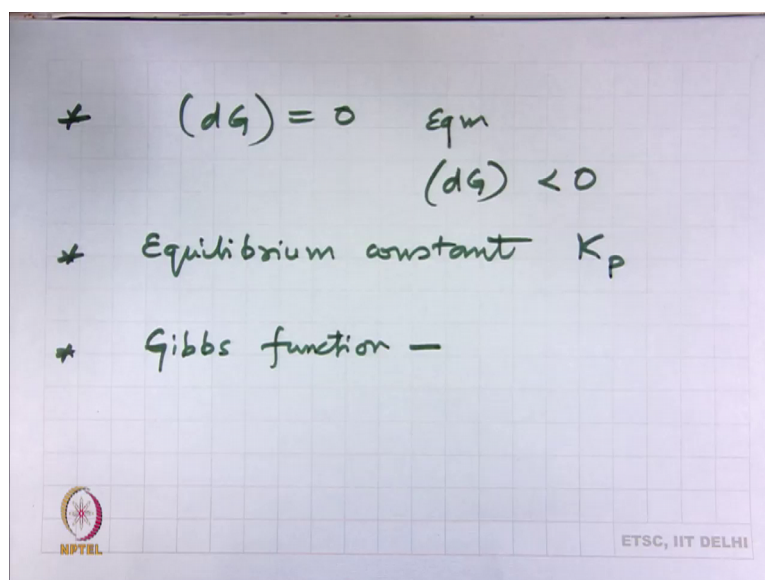 * (dG) = 0 Eqm
(dG) < 0
* Equilibrium constant Kp
* Gibbs function —
NPTEL
ETSC, IIT DELHI